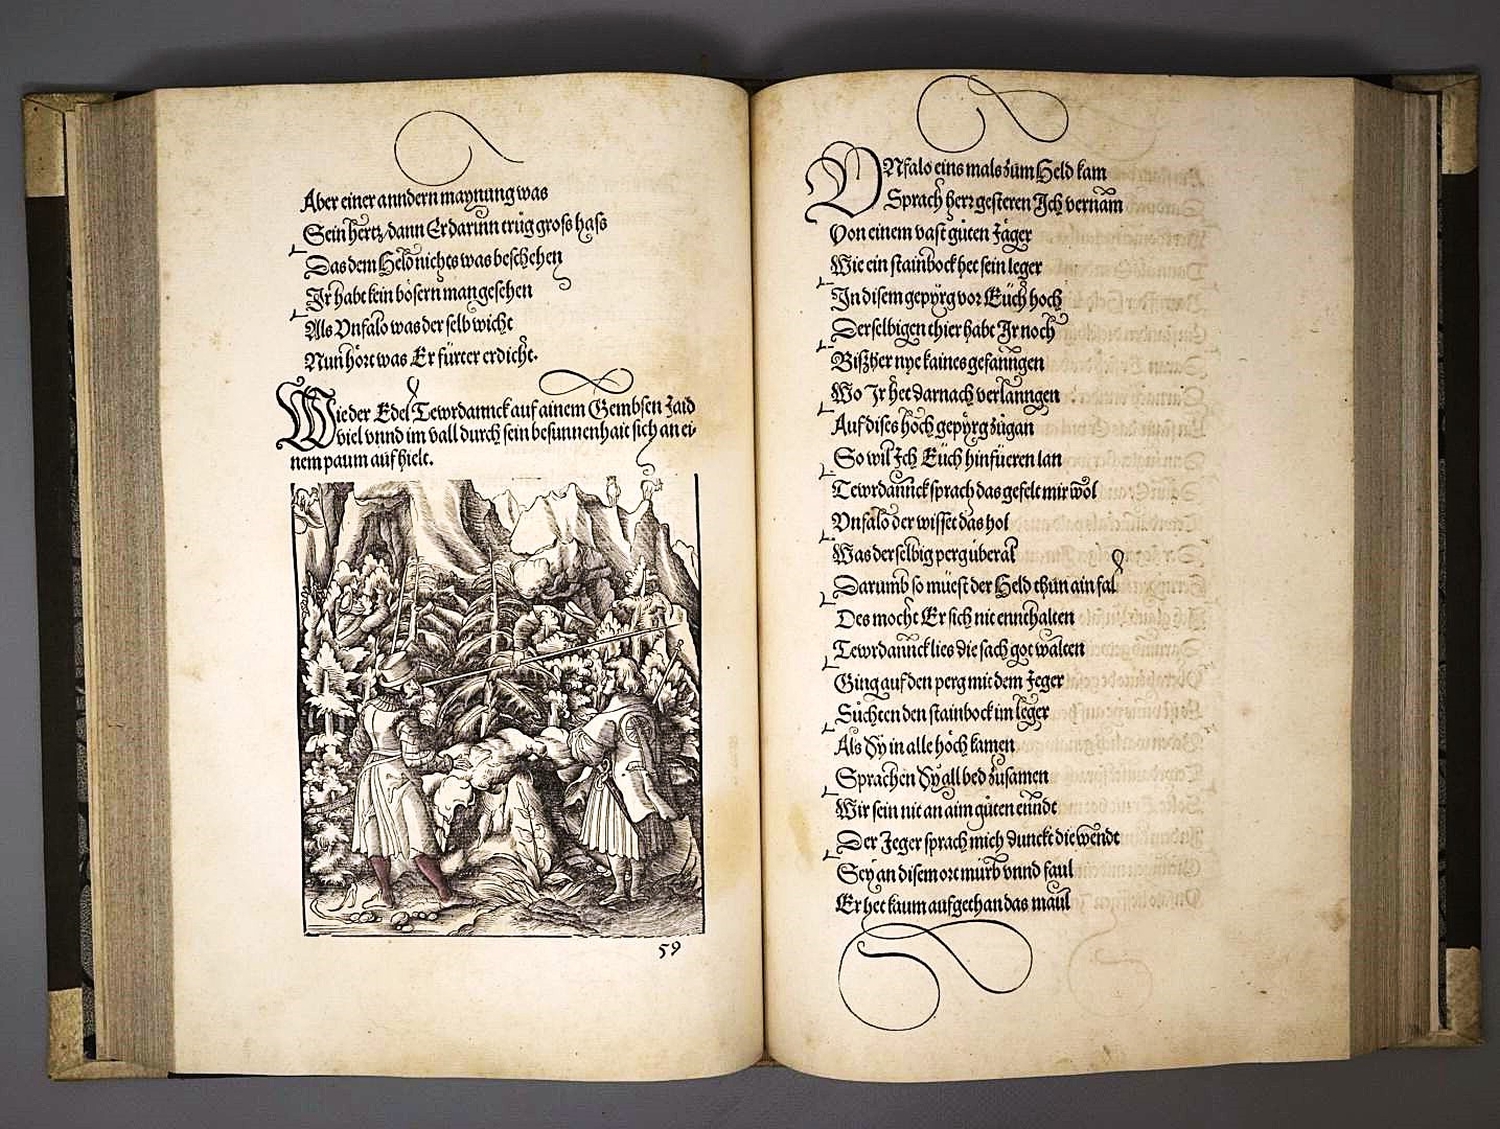 Aber einer anndern maynung was
Sein hertz/dann Er darinn trůg gross hass
Das dem Held nichts was beschehen
Ir habt kein bösern man gesehen
Als Vnfalo was der selb wicht
Nun hört was Er fürter erdicht.
Wie der Edel Tewrdannck auf ainem Gembsen Jaid
viel vnnd im vall durch sein besunnenhait sich an ei-
nem paum aufhielt.
59
VNfalo eins mals zům Held kam
Sprach herr gesteren Ich vernam
Von einem vast gůten Jäger
Wie ein stainbock het sein leger
In disem gepyrg vor Euch hoch
Derselbigen thier habt Ir noch
Bißher nye kaines gefanngen
Wo Ir het darnach verlanngen
Auf dises hoch gepyrg zůgan
So wil Ich Euch hinfüeren lan
Tewrdannck sprach das gefelt mir wol
Vnfalo der wisset das hol
Was derselbig perg überal
Darumb so müest der Held thůn ain fal
Des mocht Er sich nit ennthalten
Tewrdannck lies die sach got walten
Ging auf den perg mit dem Jeger
Sůchten den stainbock im leger
Als Sy in alle höch kamen
Sprachen Sy all bed zusamen
Wir sein nit an aim gůten enndt
Der Jeger sprach mich dunckt die wendt
Sey an disem ort mürb vnnd faul
Er het kaum aufgethan das maul